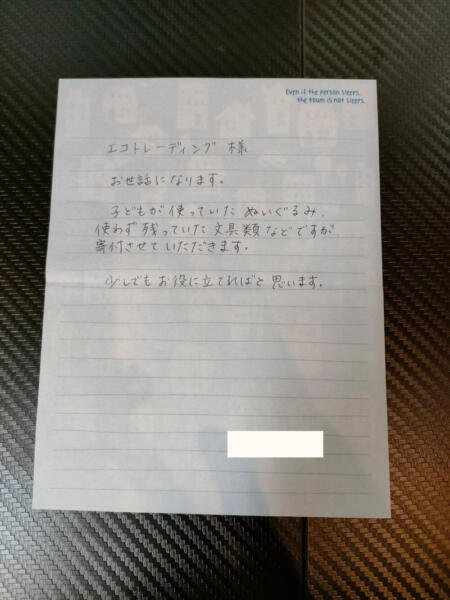 Even if the person sleeps,
the town is not sleeps.
エコトレーディング 様
お世話になります。
子どもが使っていた ぬいぐるみ、
使わず残っていた文具類などですが、
寄付させていただきます。
少しでもお役に立てればと思います。